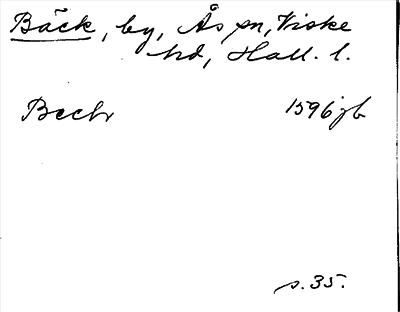 Bäck, by, Ås sn, Viske
hd, Hall. l.
Bech 1596 jb
s. 35.